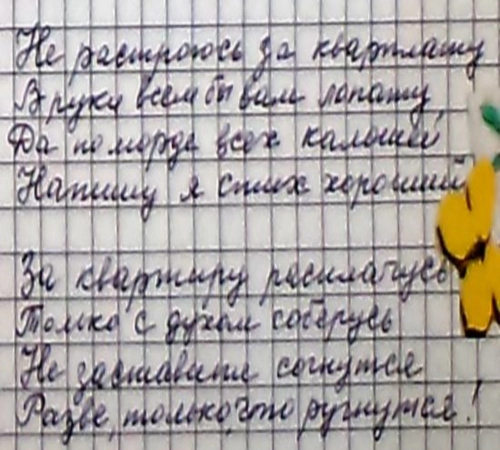 Не растроюсь за квартплату
В руки всем бы вам лопату
Да по морде всех калошей
Напишу я стих хороший
За квартиру расплачусь
Толко с духом соберусь
Не заставите согнутся
Разве, только, что ругнутся!